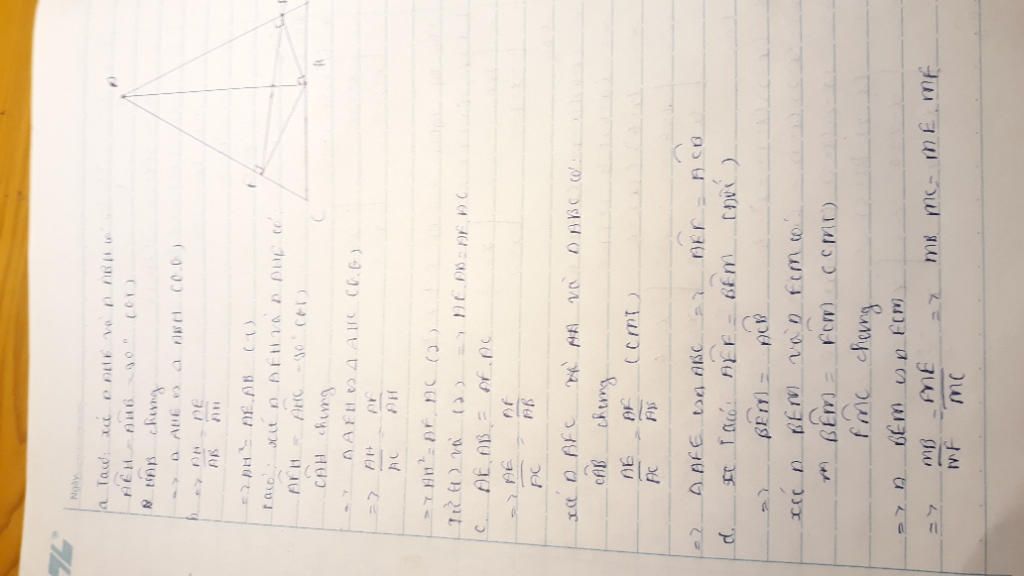 Ngày
a. Ta có: xét Δ AHE và Δ ABH có
AÊH = AĤB = 90° (GT)
HAB chung
=> Δ AHE ∽ Δ ABH (G.G)
b. => AH/AB = AE/AH
=> AH² = AE.AB (1)
Ta có: xét Δ AFH và Δ AHC có
AFH = AHC = 90° (GT)
CAH chung
=> Δ AFH ∽ Δ AHC (G.G)
=> AH/AC = AF/AH
=> AH² = AF.AC (2)
Từ (1) và (2) => AE.AB = AF.AC
c. AE.AB = AF.AC
=> AE/AC = AF/AB
xét Δ AEF và Δ ABC có:
CAB chung
AE/AC = AF/AB (CMT)
=> Δ AFE ∽ Δ ABC => AEF = ACB
d. Ta có: AEF = BEM (đđ)
=> BEM = ACB
xét Δ BEM và Δ FCM có:
BEM = FCM (CMT)
FMC chung
=> Δ BEM ∽ Δ FCM
=> MB/MF = ME/MC => MB.MC = ME.MF
A
C
H